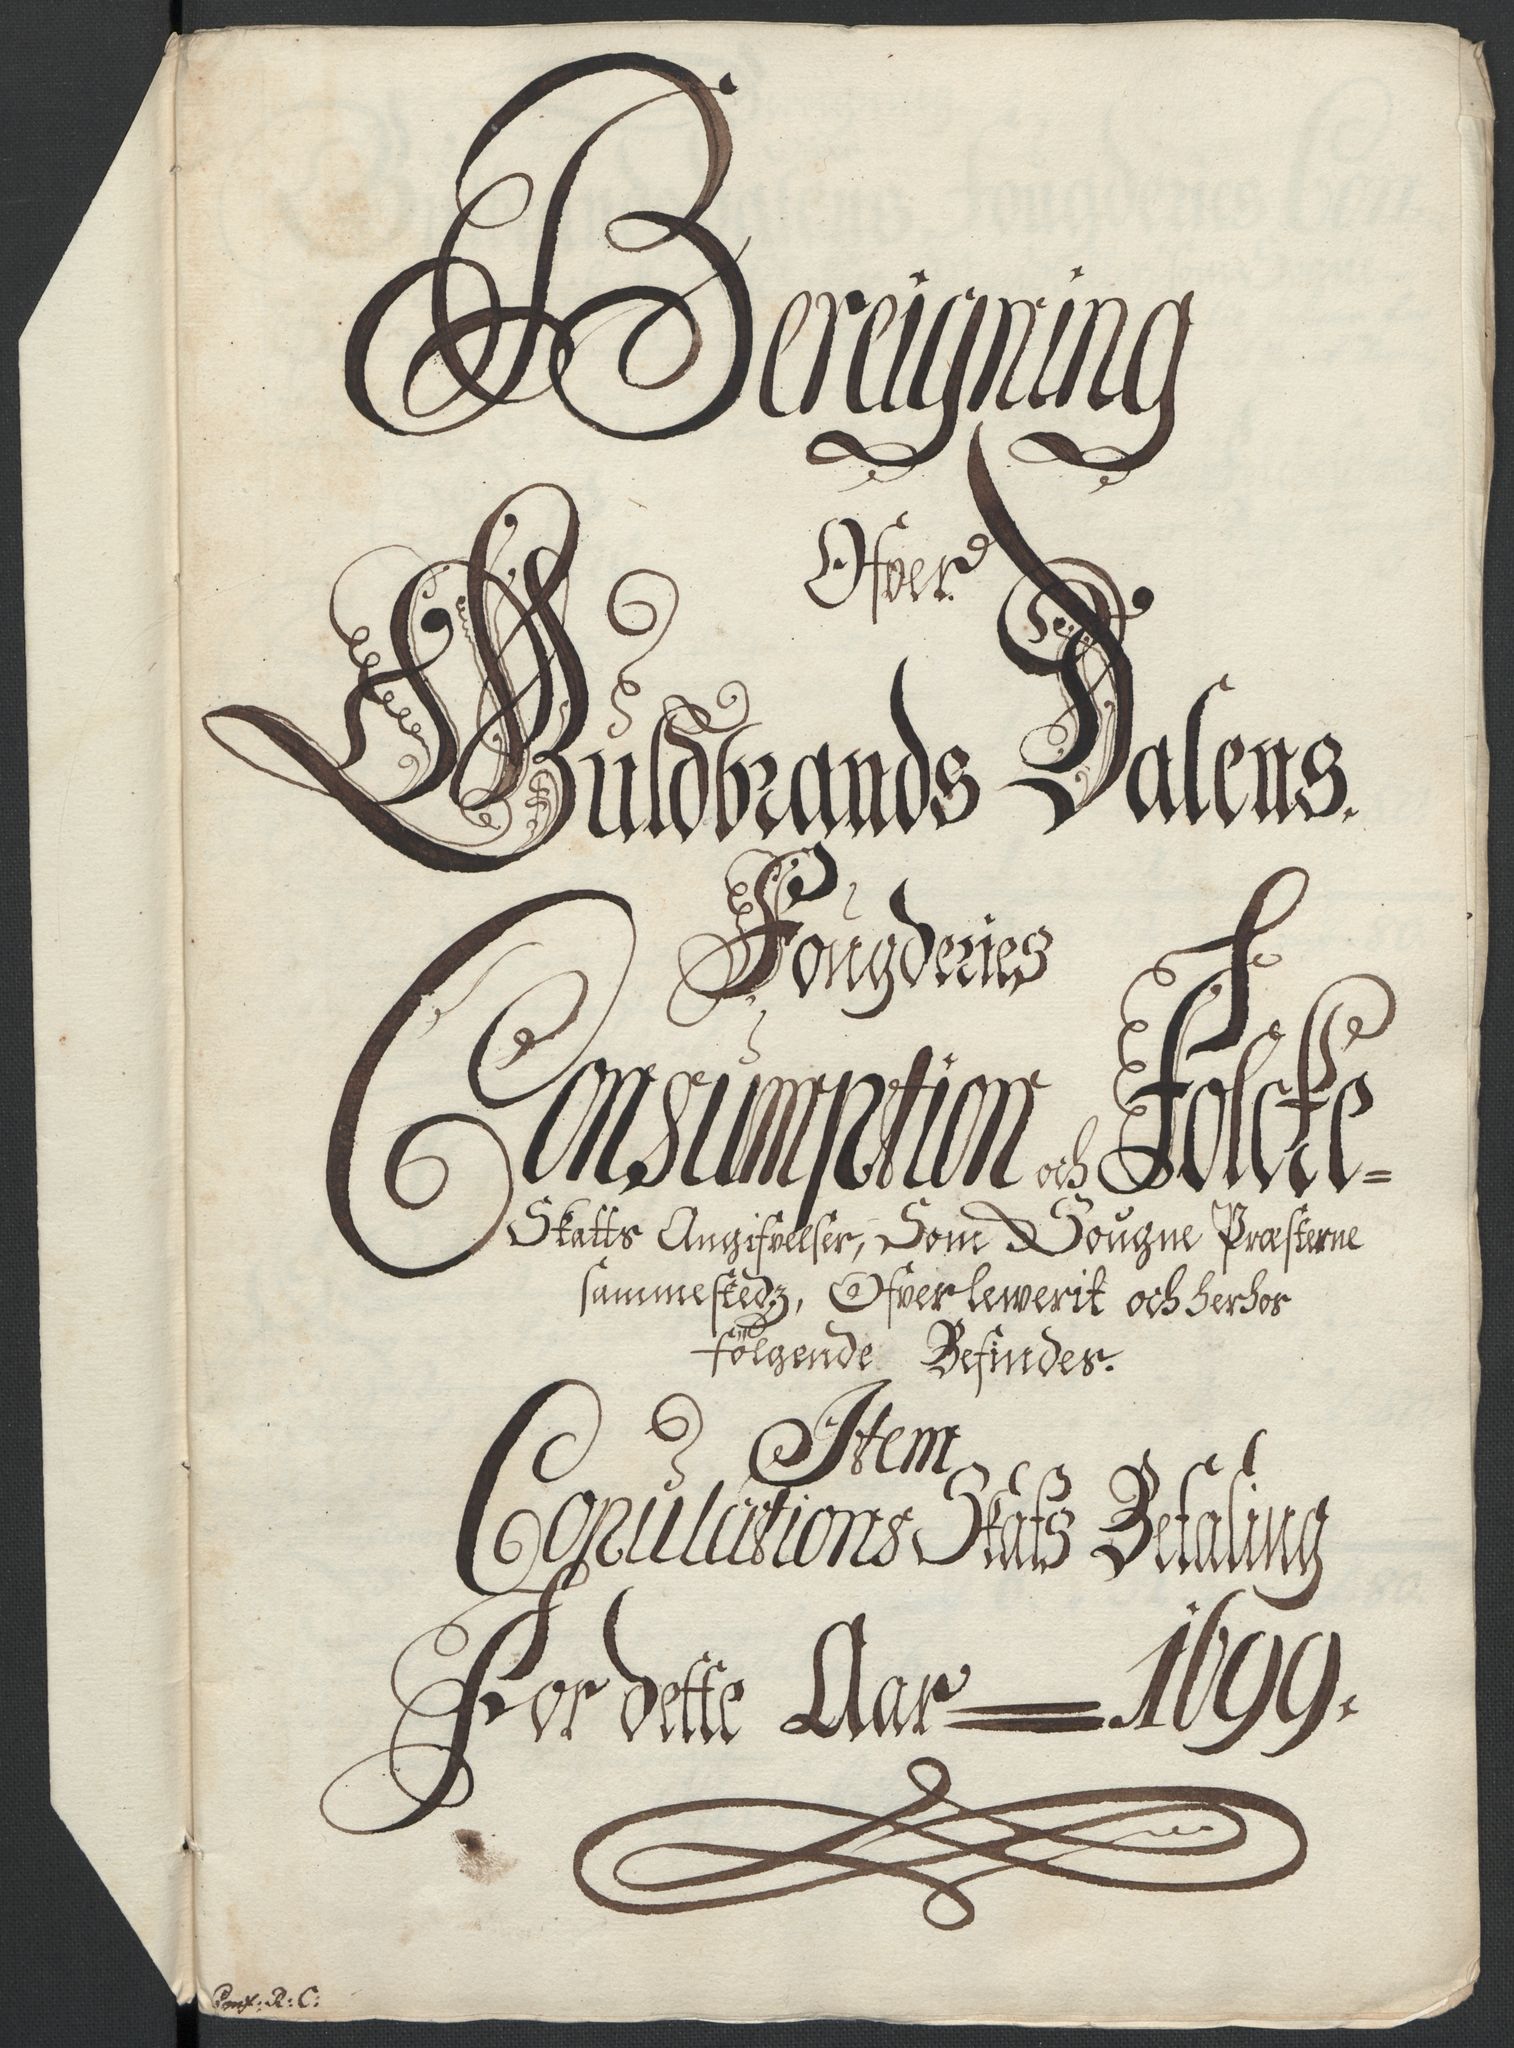 Bereigning
Ofver
Guldbrands Dalens.
Fougderies
Consumption och Folcke=
Skatts Angifvelser, Som Sougne Præsterne
sammestedz, Ofverlewerit och herhos
følgende Befindes.
Item
Copulations Skats Betaling
For dette Aar 1699.
R: C: